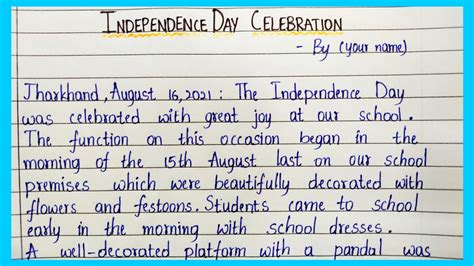 INDEPENDENCE DAY CELEBRATION
- By (your name)
Jharkhand, August 16, 2021 : The Independence Day
was celebrated with great joy at our school.
The function on this occasion began in the
morning of the 15th August last on our school
premises which were beautifully decorated with
flowers and festoons. Students came to school
early in the morning with school dresses.
A well-decorated platform with a pandal was